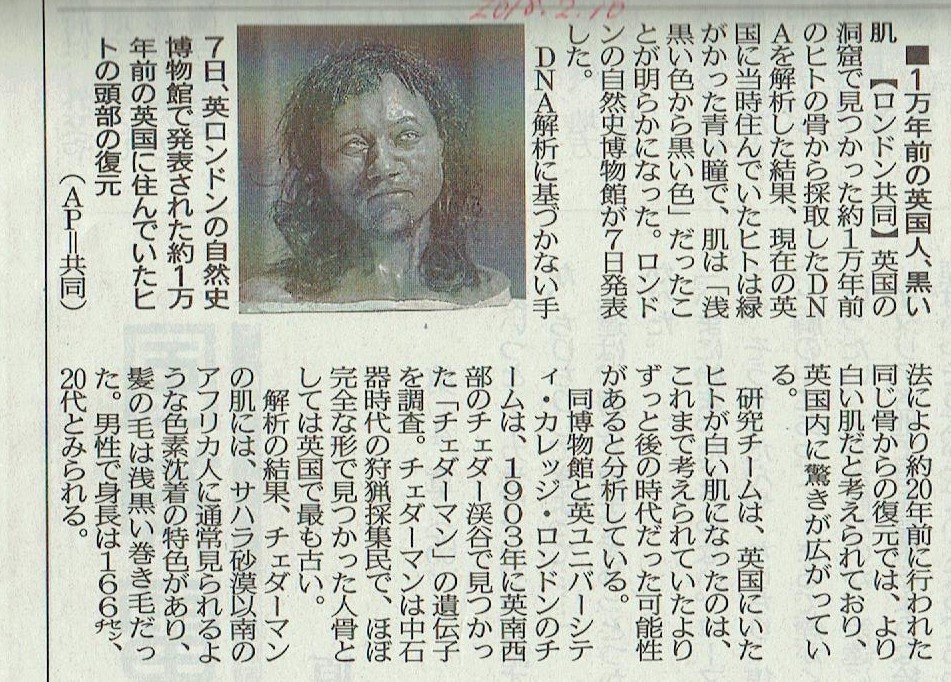 2018.2.10
■１万年前の英国人、黒い
肌　【ロンドン共同】英国の
洞窟で見つかった約１万年前
のヒトの骨から採取したＤＮ
Ａを解析した結果、現在の英
国に当時住んでいたヒトは緑
がかった青い瞳で、肌は「浅
黒い色から黒い色」だったこ
とが明らかになった。ロンド
ンの自然史博物館が７日発表
した。
　ＤＮＡ解析に基づかない手
法により約20年前に行われた
同じ骨からの復元では、より
白い肌だと考えられており、
英国内に驚きが広がってい
る。
　研究チームは、英国にいた
ヒトが白い肌になったのは、
これまで考えられていたより
ずっと後の時代だった可能性
があると分析している。
　同博物館と英ユニバーシテ
ィ・カレッジ・ロンドンのチ
ームは、１９０３年に英南西
部のチェダー渓谷で見つかっ
た「チェダーマン」の遺伝子
を調査。チェダーマンは中石
器時代の狩猟採集民で、ほぼ
完全な形で見つかった人骨と
しては英国で最も古い。
　解析の結果、チェダーマン
の肌には、サハラ砂漠以南の
アフリカ人に通常見られるよ
うな色素沈着の特色があり、
髪の毛は浅黒い巻き毛だっ
た。男性で身長は１６６㌢、
20代とみられる。
７日、英ロンドンの自然史
博物館で発表された約１万
年前の英国に住んでいたヒ
トの頭部の復元
（ＡＰ＝共同）